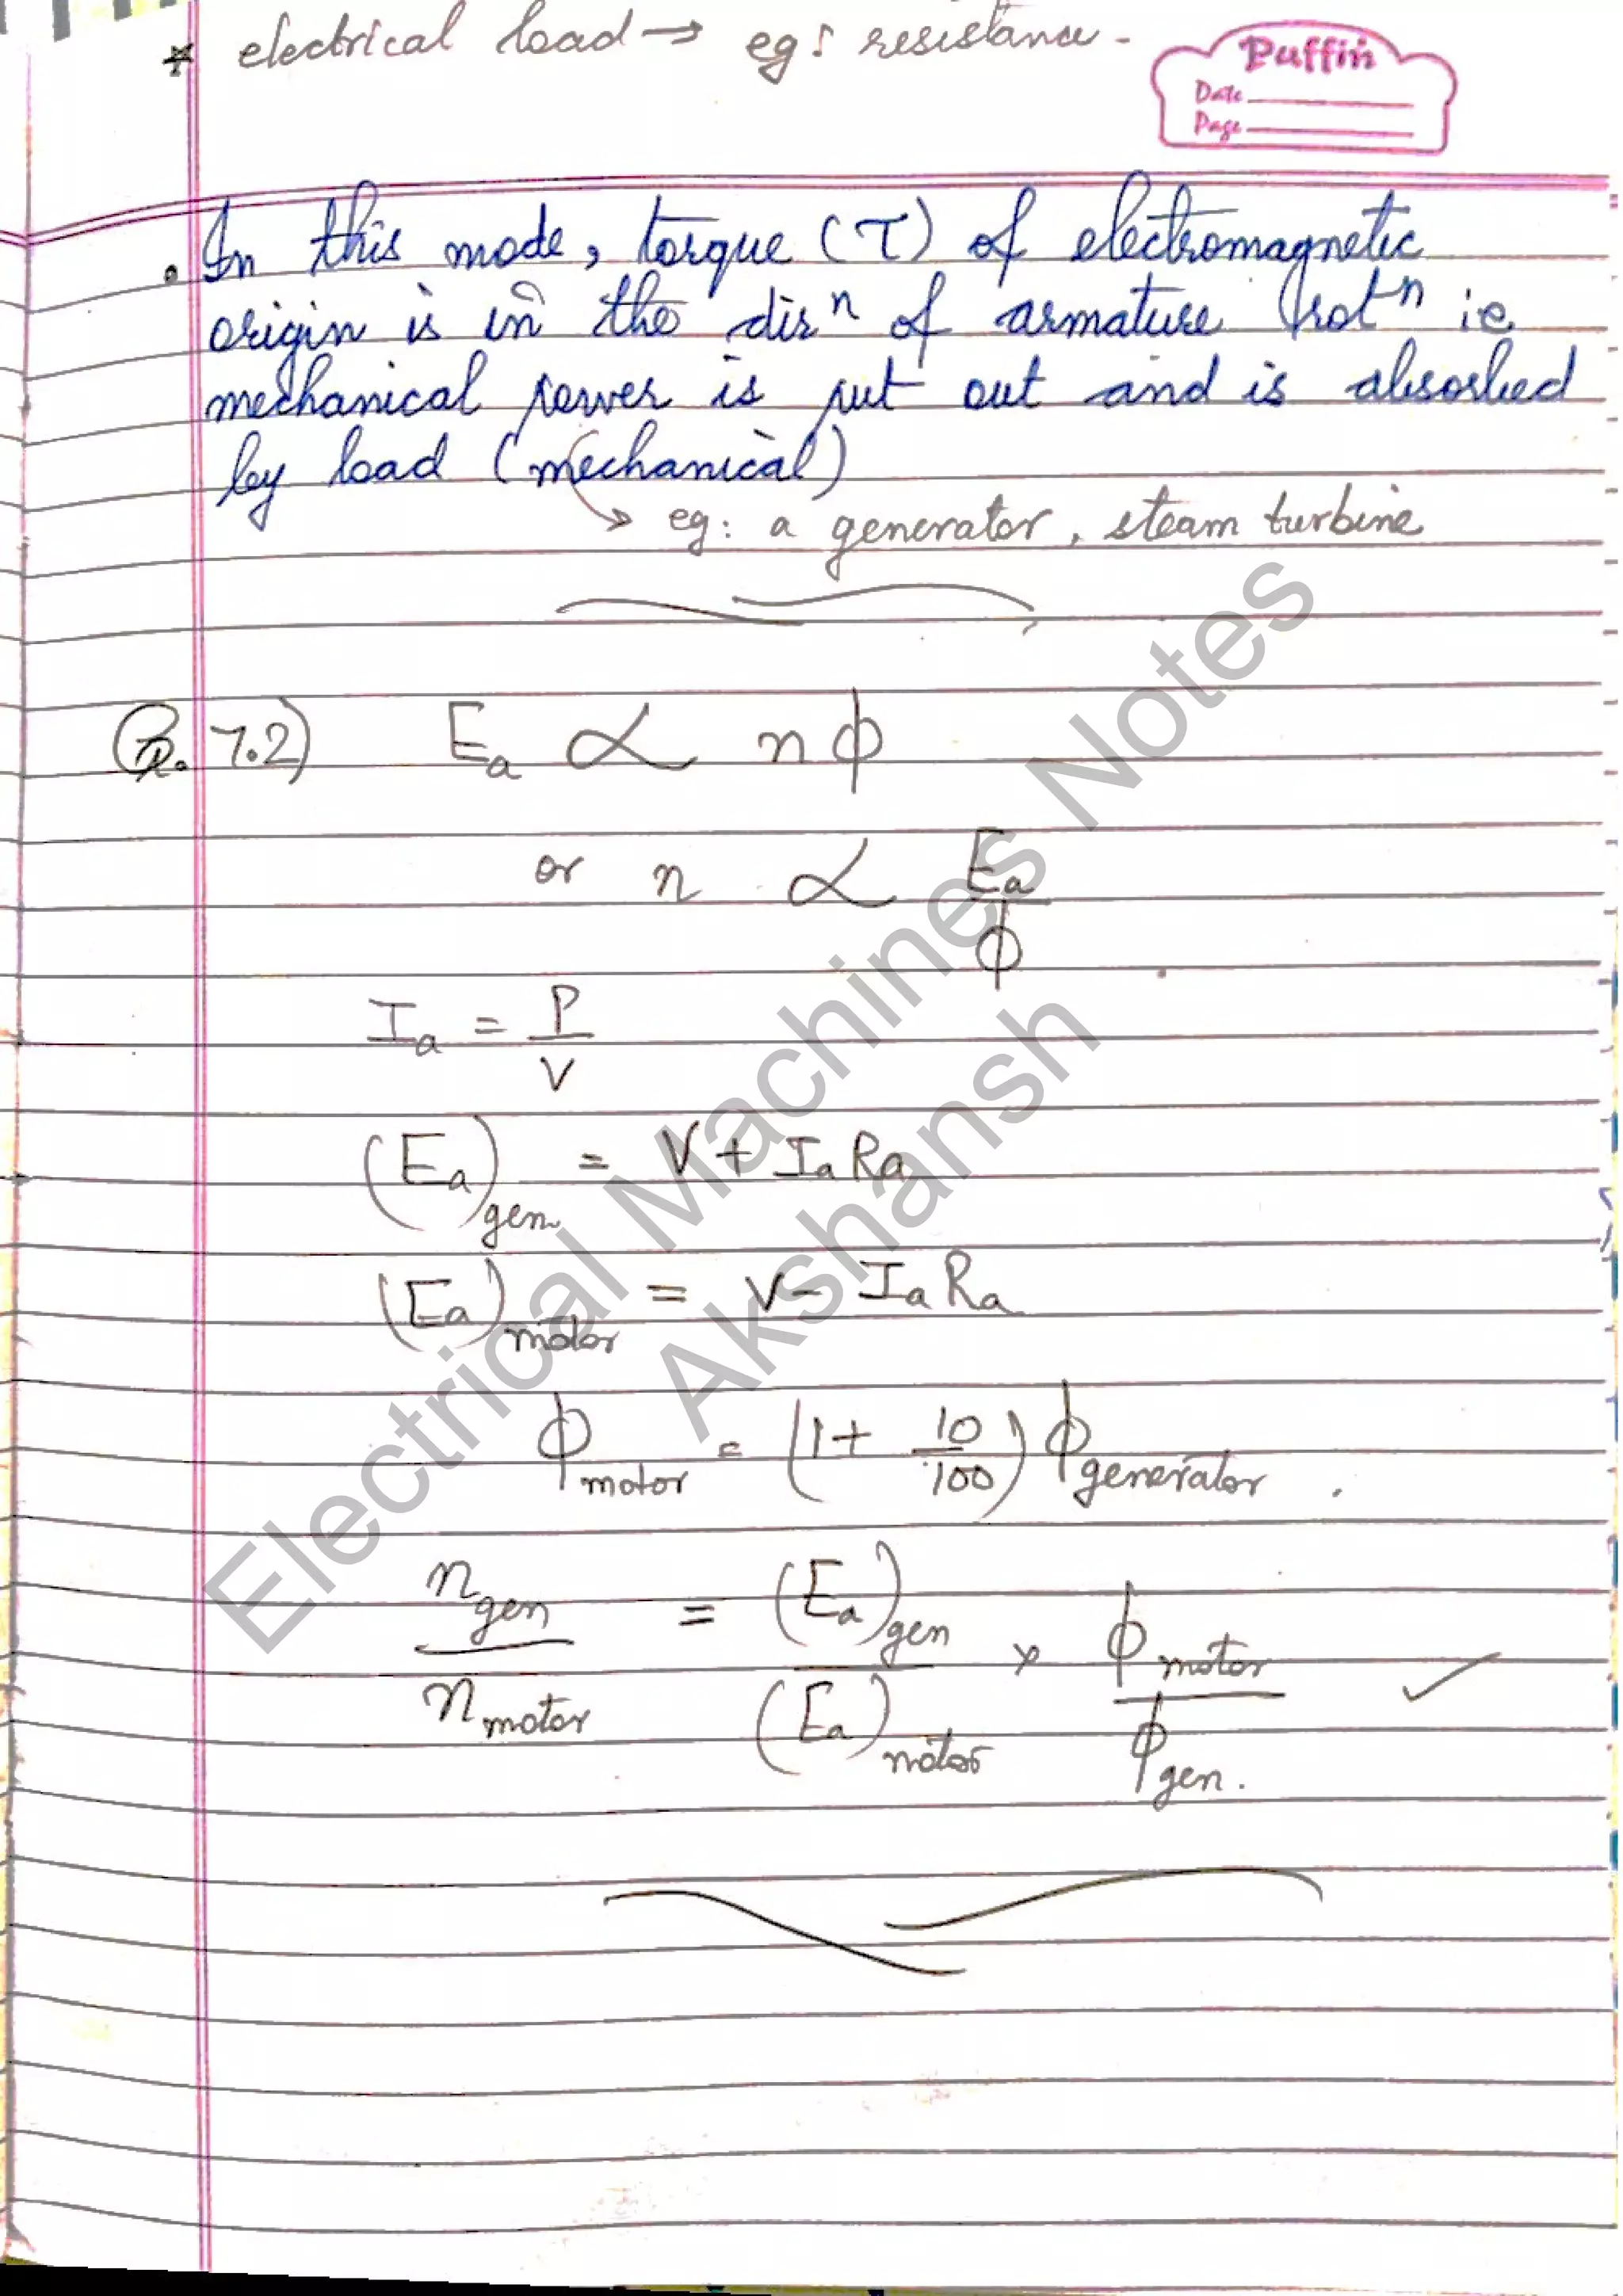 * electrical load → eg: resistance.
Puffin
Date
Page
• In this mode, torque (τ) of electromagnetic
origin is in the dirⁿ of armature rotⁿ ie.
mechanical power is put out and is absorbed
by load (mechanical)
→ eg: a generator, steam turbine
7.2) Ea ∝ nϕ
or n ∝ Ea/ϕ
Ia = P/V
(Ea)gen = V + IaRa
(Ea)motor = V - IaRa
ϕmotor = (1 + 10/100) ϕgenerator.
ngen/nmotor = (Ea)gen/(Ea)motor × ϕmotor/ϕgen. ✓
Electrical Machines Notes
Akshansh